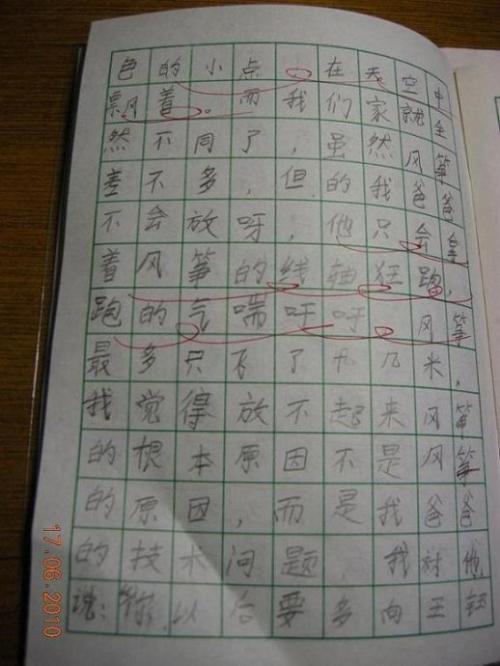 色的小点，在天空中
飘着。而我们家就全
然不同了，虽然风筝
差不多，但的我爸爸
不会放呀，他只会拿
着风筝的线轴狂跑，
跑的气喘吁吁，风筝
最多只飞了十几米，
我觉得放不起来风筝
的根本原因不是风筝
的原因，而是我爸爸
的技术问题，我对他
说：“你以后要多向王
17.06.2010